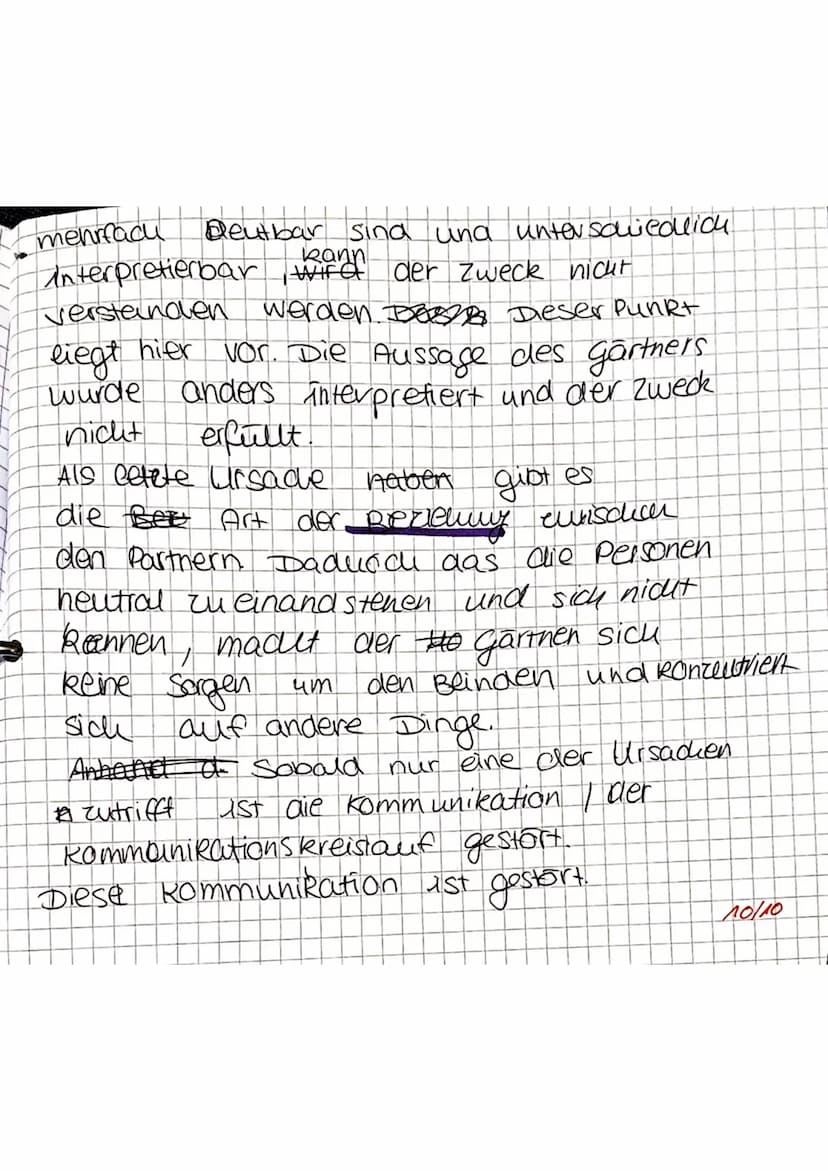 mehrfach Deutbar sind und unterschiedlich
kann
interpretierbar, wird der Zweck nicht
verstanden werden. Dieser Punkt
liegt hier vor. Die Aussage des Gärtners
wurde anders interpretiert und der Zweck
nicht erfüllt.
Als letzte Ursache haben gibt es
die Bez Art der Beziehung zwischen
den Partnern. Dadurch das die Personen
neutral zueinand stehen und sich nicht
kennen, macht der Gärtner sich
keine Sorgen um den Blinden und konzentriert
sich auf andere Dinge.
Anhand d. Sobald nur eine der Ursachen
zutrifft ist die Kommunikation / der
Kommunikationskreislauf gestört.
Diese Kommunikation ist gestört.
10/10